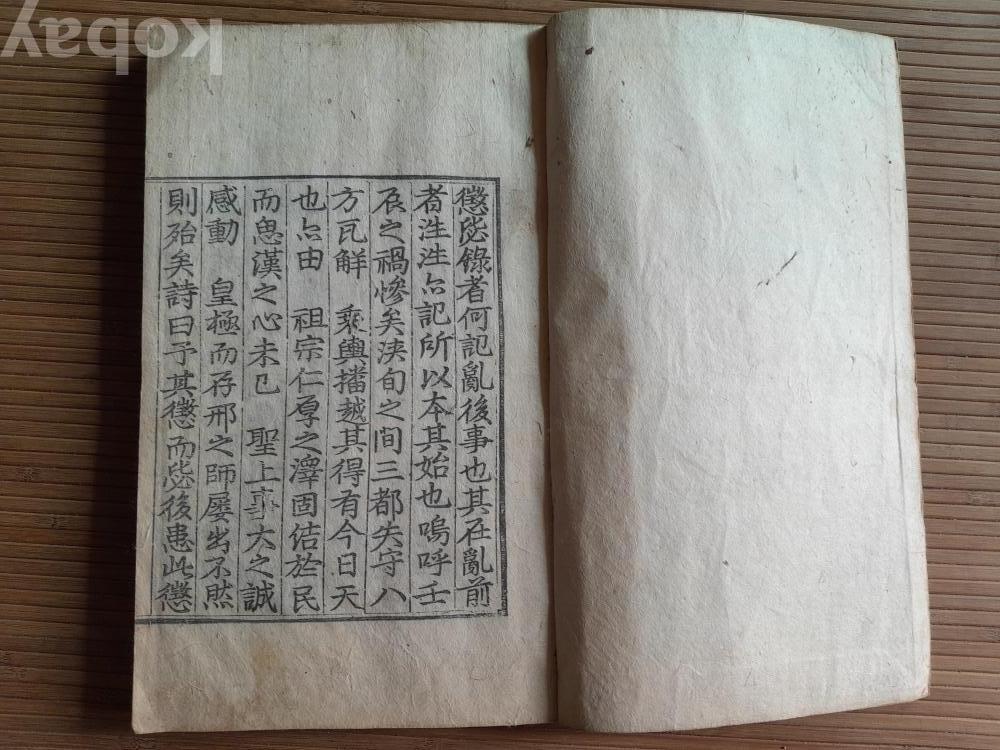 懲毖錄者何記亂後事也其在亂前
者往往亦記所以本其始也嗚呼壬
辰之禍慘矣浹旬之間三都失守八
方瓦解 乘輿播越其得有今日天
也亦由 祖宗仁厚之澤固結於民
而思漢之心未已 聖上事大之誠
感動 皇極而存邢之師屢出不然
則殆矣詩曰予其懲而毖後患此懲
kobay